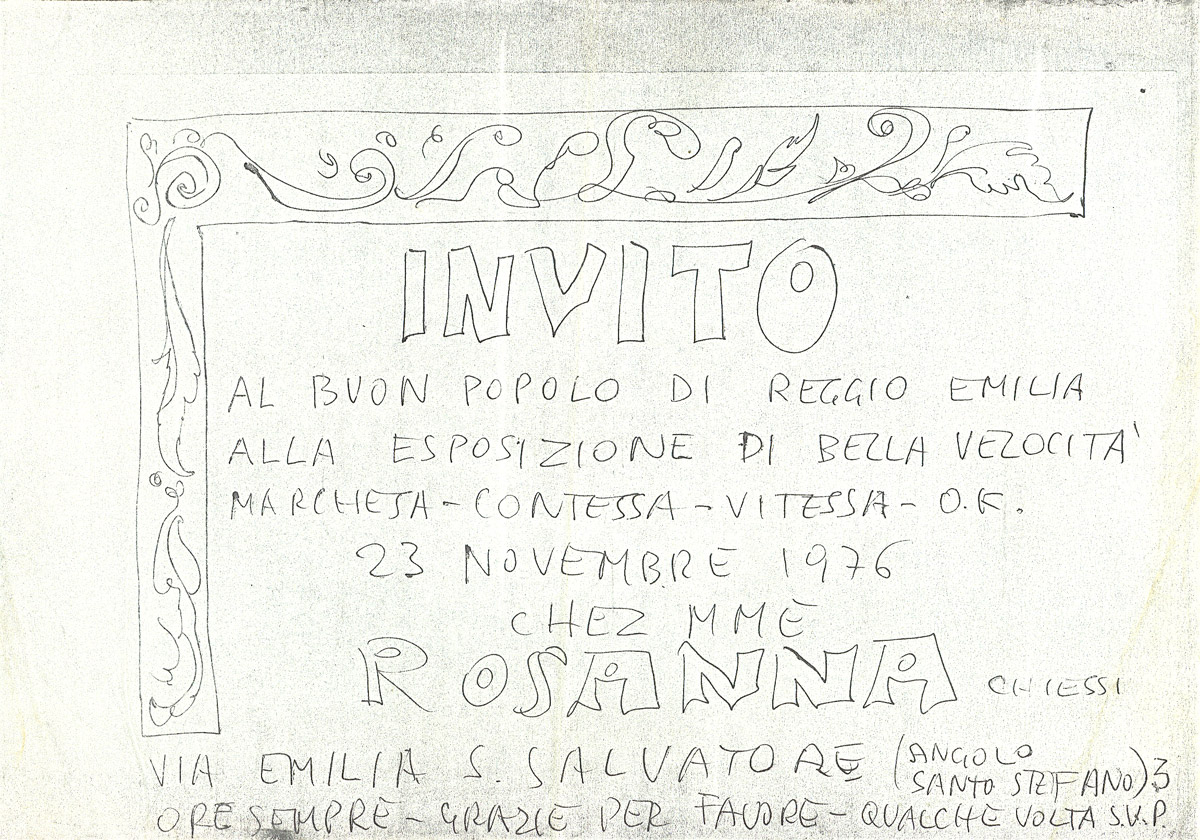 INVITO
AL BUON POPOLO DI REGGIO EMILIA
ALLA ESPOSIZIONE DI BELLA VELOCITA'
MARCHESA - CONTESSA - VITESSA - O.K.
23 NOVEMBRE 1976
CHEZ MME
ROSANNA CHIESSI
VIA EMILIA S. SALVATORE (ANGOLO SANTO STEFANO) 3
ORE SEMPRE - GRAZIE PER FAVORE - QUACCHE VOLTA S.V.P.